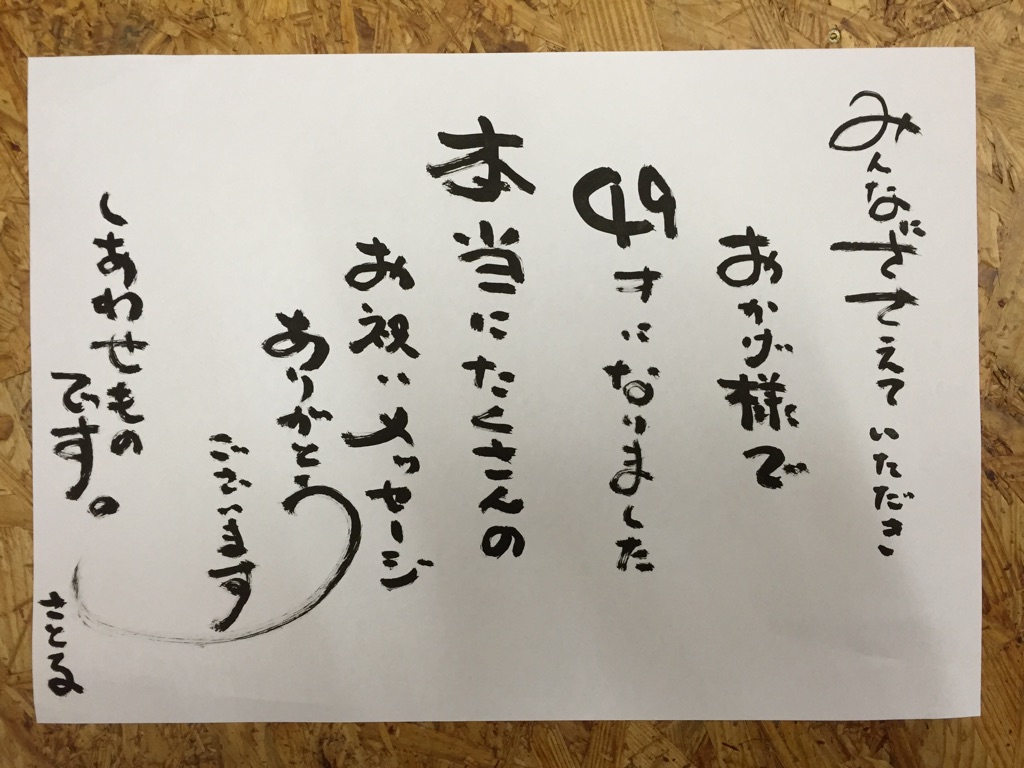 みんなにささえていただき
おかげ様で
49才になりました
本当にたくさんの
お祝いメッセージ
ありがとう
ございます
しあわせもの
です。
さとる